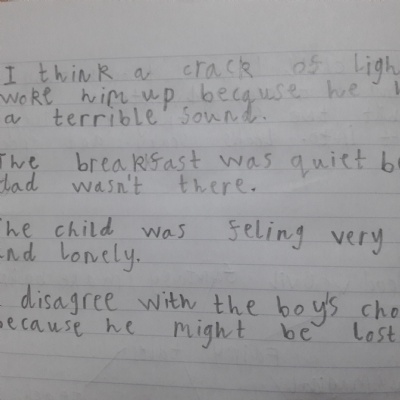 I think a crack of ligh
woke him up because he
a terrible sound.
The breakfast was quiet be
dad wasn't there.
The child was feling very
and lonely.
disagree with the boy's cho
because he might be lost